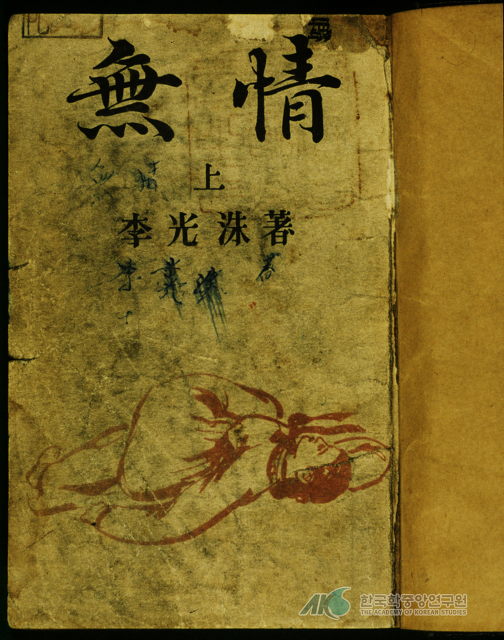 無情
上
李光洙著
한국학중앙연구원
THE ACADEMY OF KOREAN STUDIES